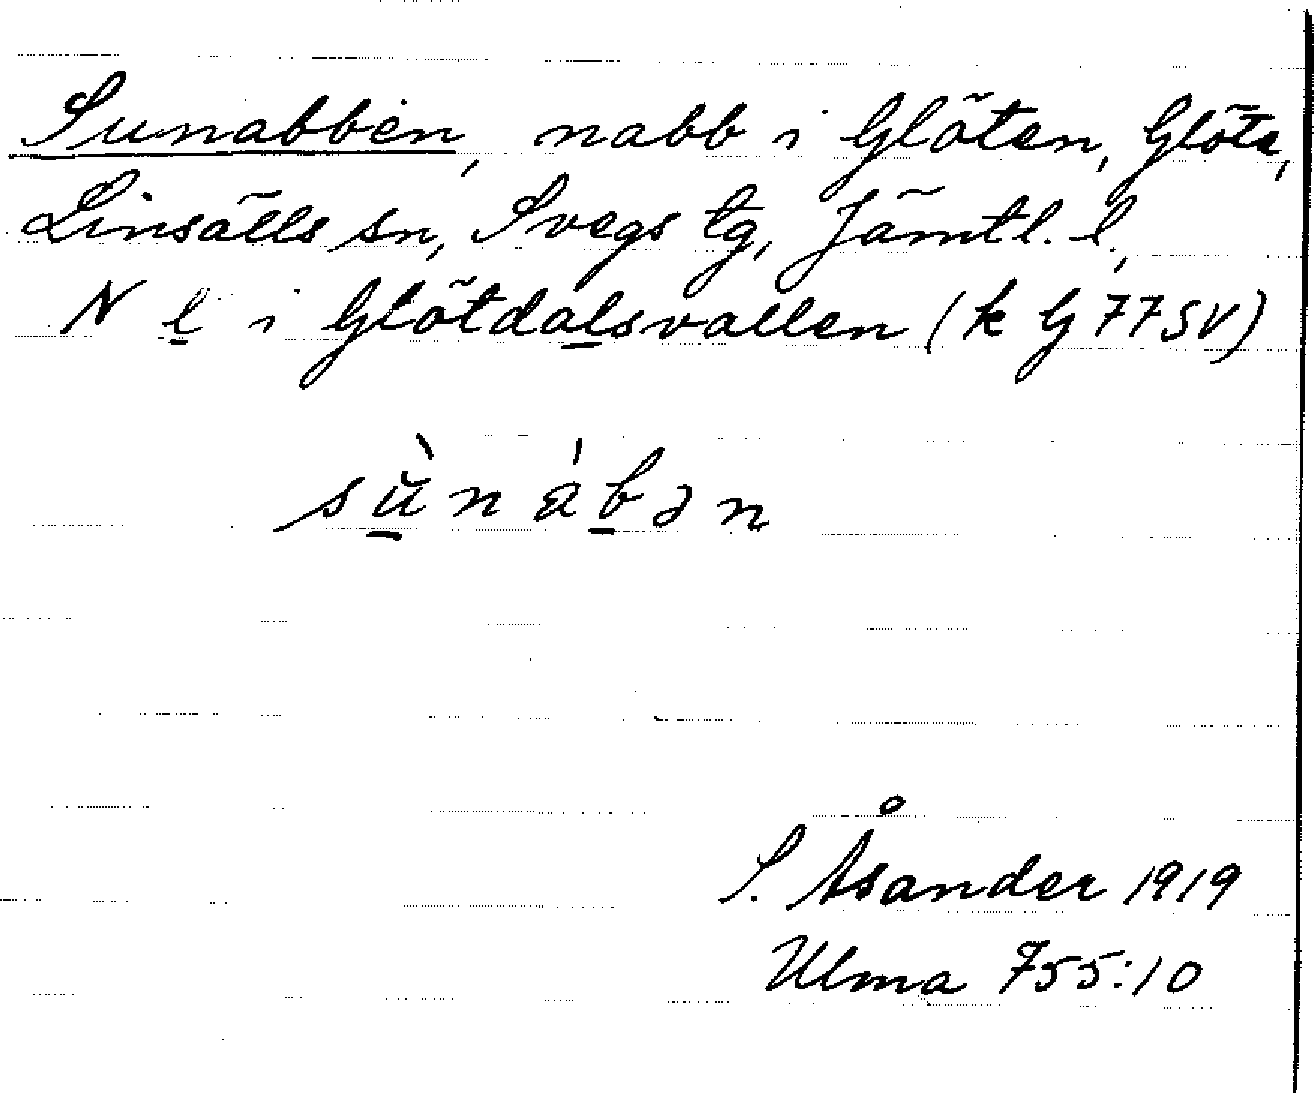 Sunabben, nabb i Glöten, Glöte,
Linsälls sn, Svegs tg, Jämtl. l.,
N l i Glötdalsvallen (k G 77 SV)
sùnábən
S. Åsander 1919
Ulma 755:10